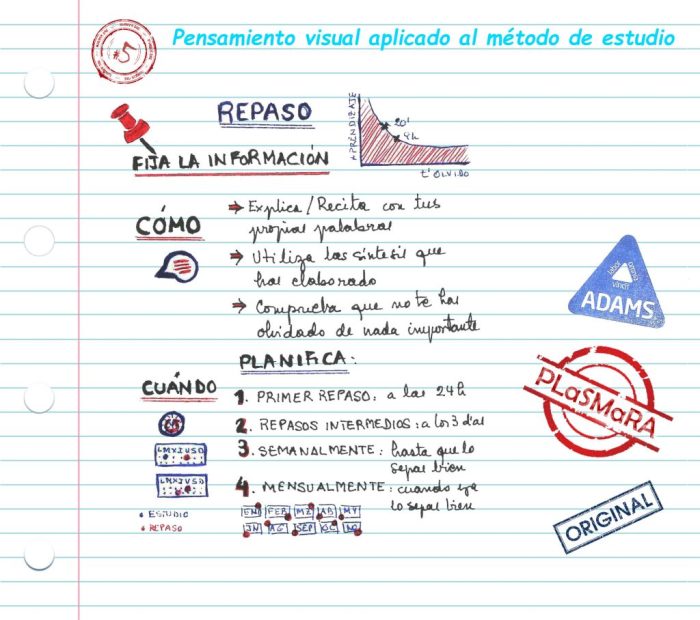 #5
Pensamiento visual aplicado al método de estudio
REPASO
APRENDIZAJE
20'
9h
tº OLVIDO
FIJA LA INFORMACIÓN
CÓMO
→ Explica/Recita con tus
propias palabras
→ Utiliza las síntesis que
has elaborado
→ Comprueba que no te has
olvidado de nada importante
labor omnia vincit
ADAMS
PLANIFICA:
CUÁNDO
1. PRIMER REPASO: a las 24h
2. REPASOS INTERMEDIOS: a los 3 días
3. SEMANALMENTE: hasta que lo
sepas bien
4. MENSUALMENTE: cuando ya
lo sepas bien
LMXJVSD
LMXJVSD
ESTUDIO
REPASO
EN FEB MZ AB MY
JN AG SEP OC NO
PLaSMaRA
ORIGINAL